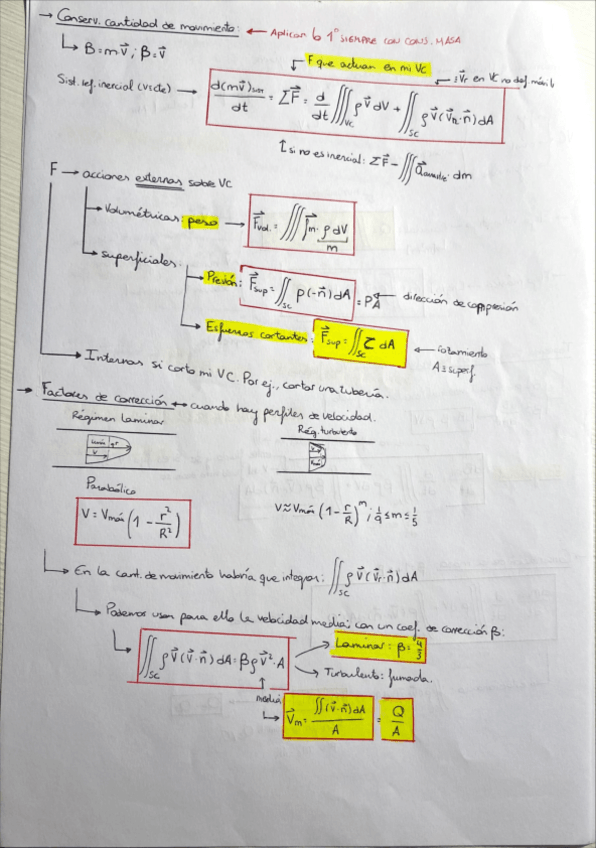 → Conserv. cantidad de movimiento: ← Aplicar 6 1º SIEMPRE CON CONS. MASA
↳ B = m\vec{V} ; β = \vec{V}
F que actúan en mi VC
= \vec{V}r en VC no def. móvil
Sist. ref. inercial (v=cte) → d(m\vec{V})sist/dt = Σ\vec{F} = d/dt ∭VC ρ\vec{V} dV + ∬SC ρ\vec{V}(\vec{V}R·\vec{n})dA
↑ si no es inercial: Σ\vec{F} - ∭ · dm
F → acciones externas sobre VC
→ Volumétricas: peso → \vec{F}vol. = ∭ \vec{f}m · ρ dV
m
→ superficiales:
→ Presión: \vec{F}sup = ∬SC p(-\vec{n})dA = PA ← dirección de compresión
→ Esfuerzos cortantes: \vec{F}sup = ∬SC τ dA ← rozamiento
A = superf.
→ Internas si corto mi VC. Por ej., cortar una tubería.
→ Factores de corrección ↔ cuando hay perfiles de velocidad.
Régimen Laminar
Rég. turbulento
Parabólico
V = Vmáx (1 - r²/R²)
V ≈ Vmáx (1 - r/R)^m ; 1/9 ≤ m ≤ 1/5
↳ En la cant. de movimiento habría que integrar: ∬SC ρ\vec{V}(\vec{V}r·\vec{n})dA
↳ Podemos usar para ello la velocidad media, con un coef. de corrección β:
↳ ∬SC ρ\vec{V}(\vec{V}·\vec{n})dA = βρ\vec{V}²·A
→ Laminar: β = 4/3
→ Turbulento: fumada.
media
↳ \vec{V}m = ∬(\vec{V}·\vec{n})dA / A = Q/A